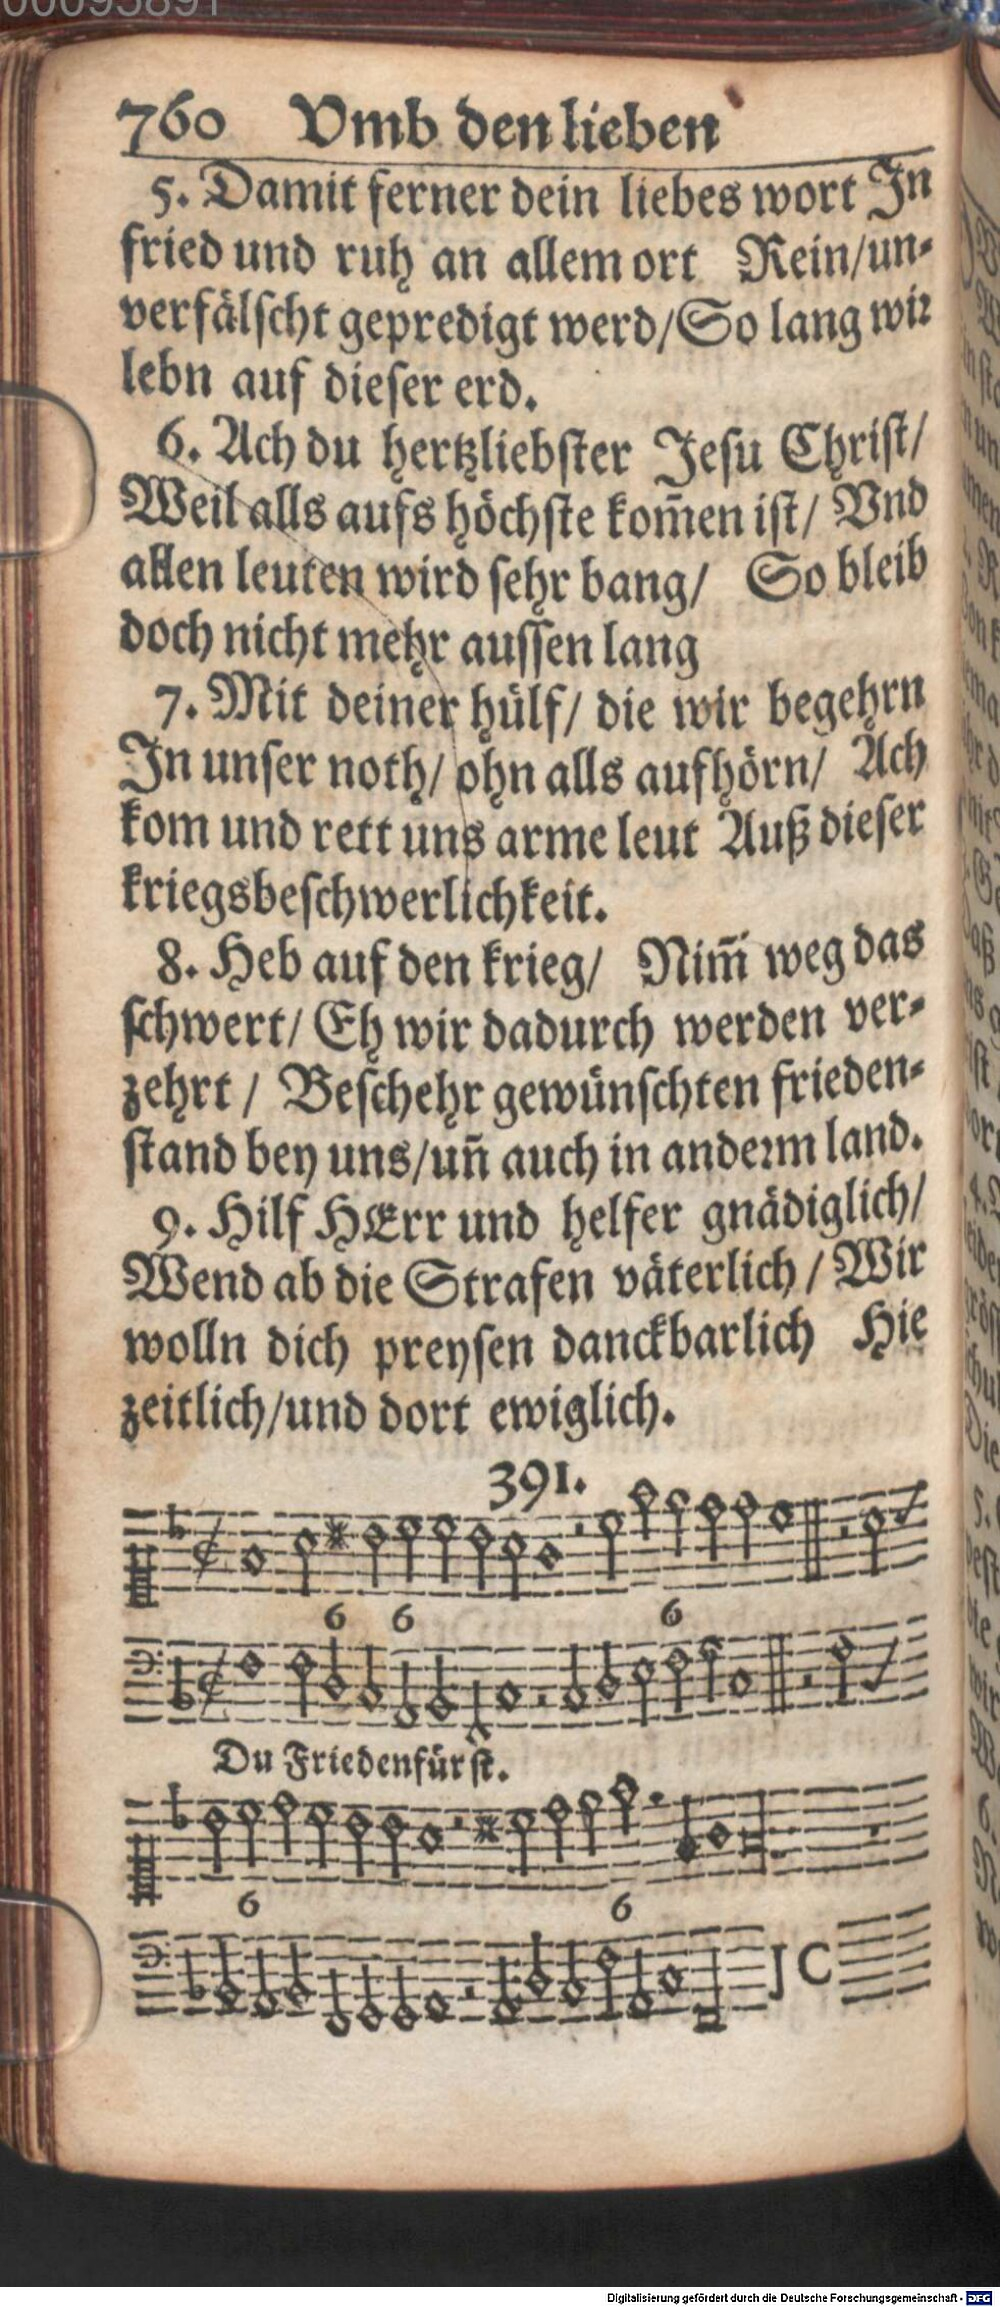 00095891
760 Vmb den lieben
5. Damit ferner dein liebes wort In
fried und ruh an allem ort Rein/un⸗
verfälſcht gepredigt werd/So lang wir
lebn auf dieſer erd.
6. Ach du hertzliebſter Jeſu Chriſt/
Weil alls aufs höchſte kom̃en iſt/ Vnd
allen leuten wird ſehr bang/ So bleib
doch nicht mehr auſſen lang
7. Mit deiner hülf/ die wir begehrn
In unſer noth/ ohn alls aufhörn/ Ach
kom und rett uns arme leut Auß dieſer
kriegsbeſchwerlichkeit.
8. Heb auf den krieg/ Nim̃ weg das
ſchwert/ Eh wir dadurch werden ver⸗
zehrt / Beſchehr gewünſchten frieden⸗
ſtand bey uns/uñ auch in anderm land.
9. Hilf HErr und helfer gnädiglich/
Wend ab die Strafen väterlich / Wir
wolln dich preyſen danckbarlich Hie
zeitlich/und dort ewiglich.
391.
6 6 6
Du Friedenfürſt.
6 6
J C
Digitalisierung gefördert durch die Deutsche Forschungsgemeinschaft - DFG